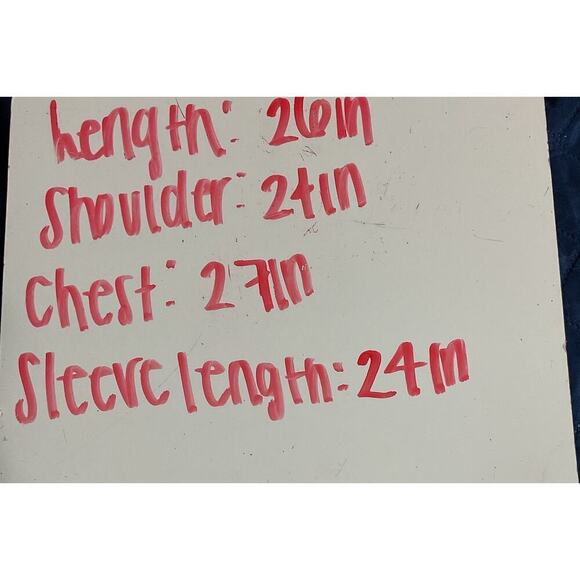 Length: 26in
Shoulder: 24in
Chest: 27in
Sleeve length: 24in